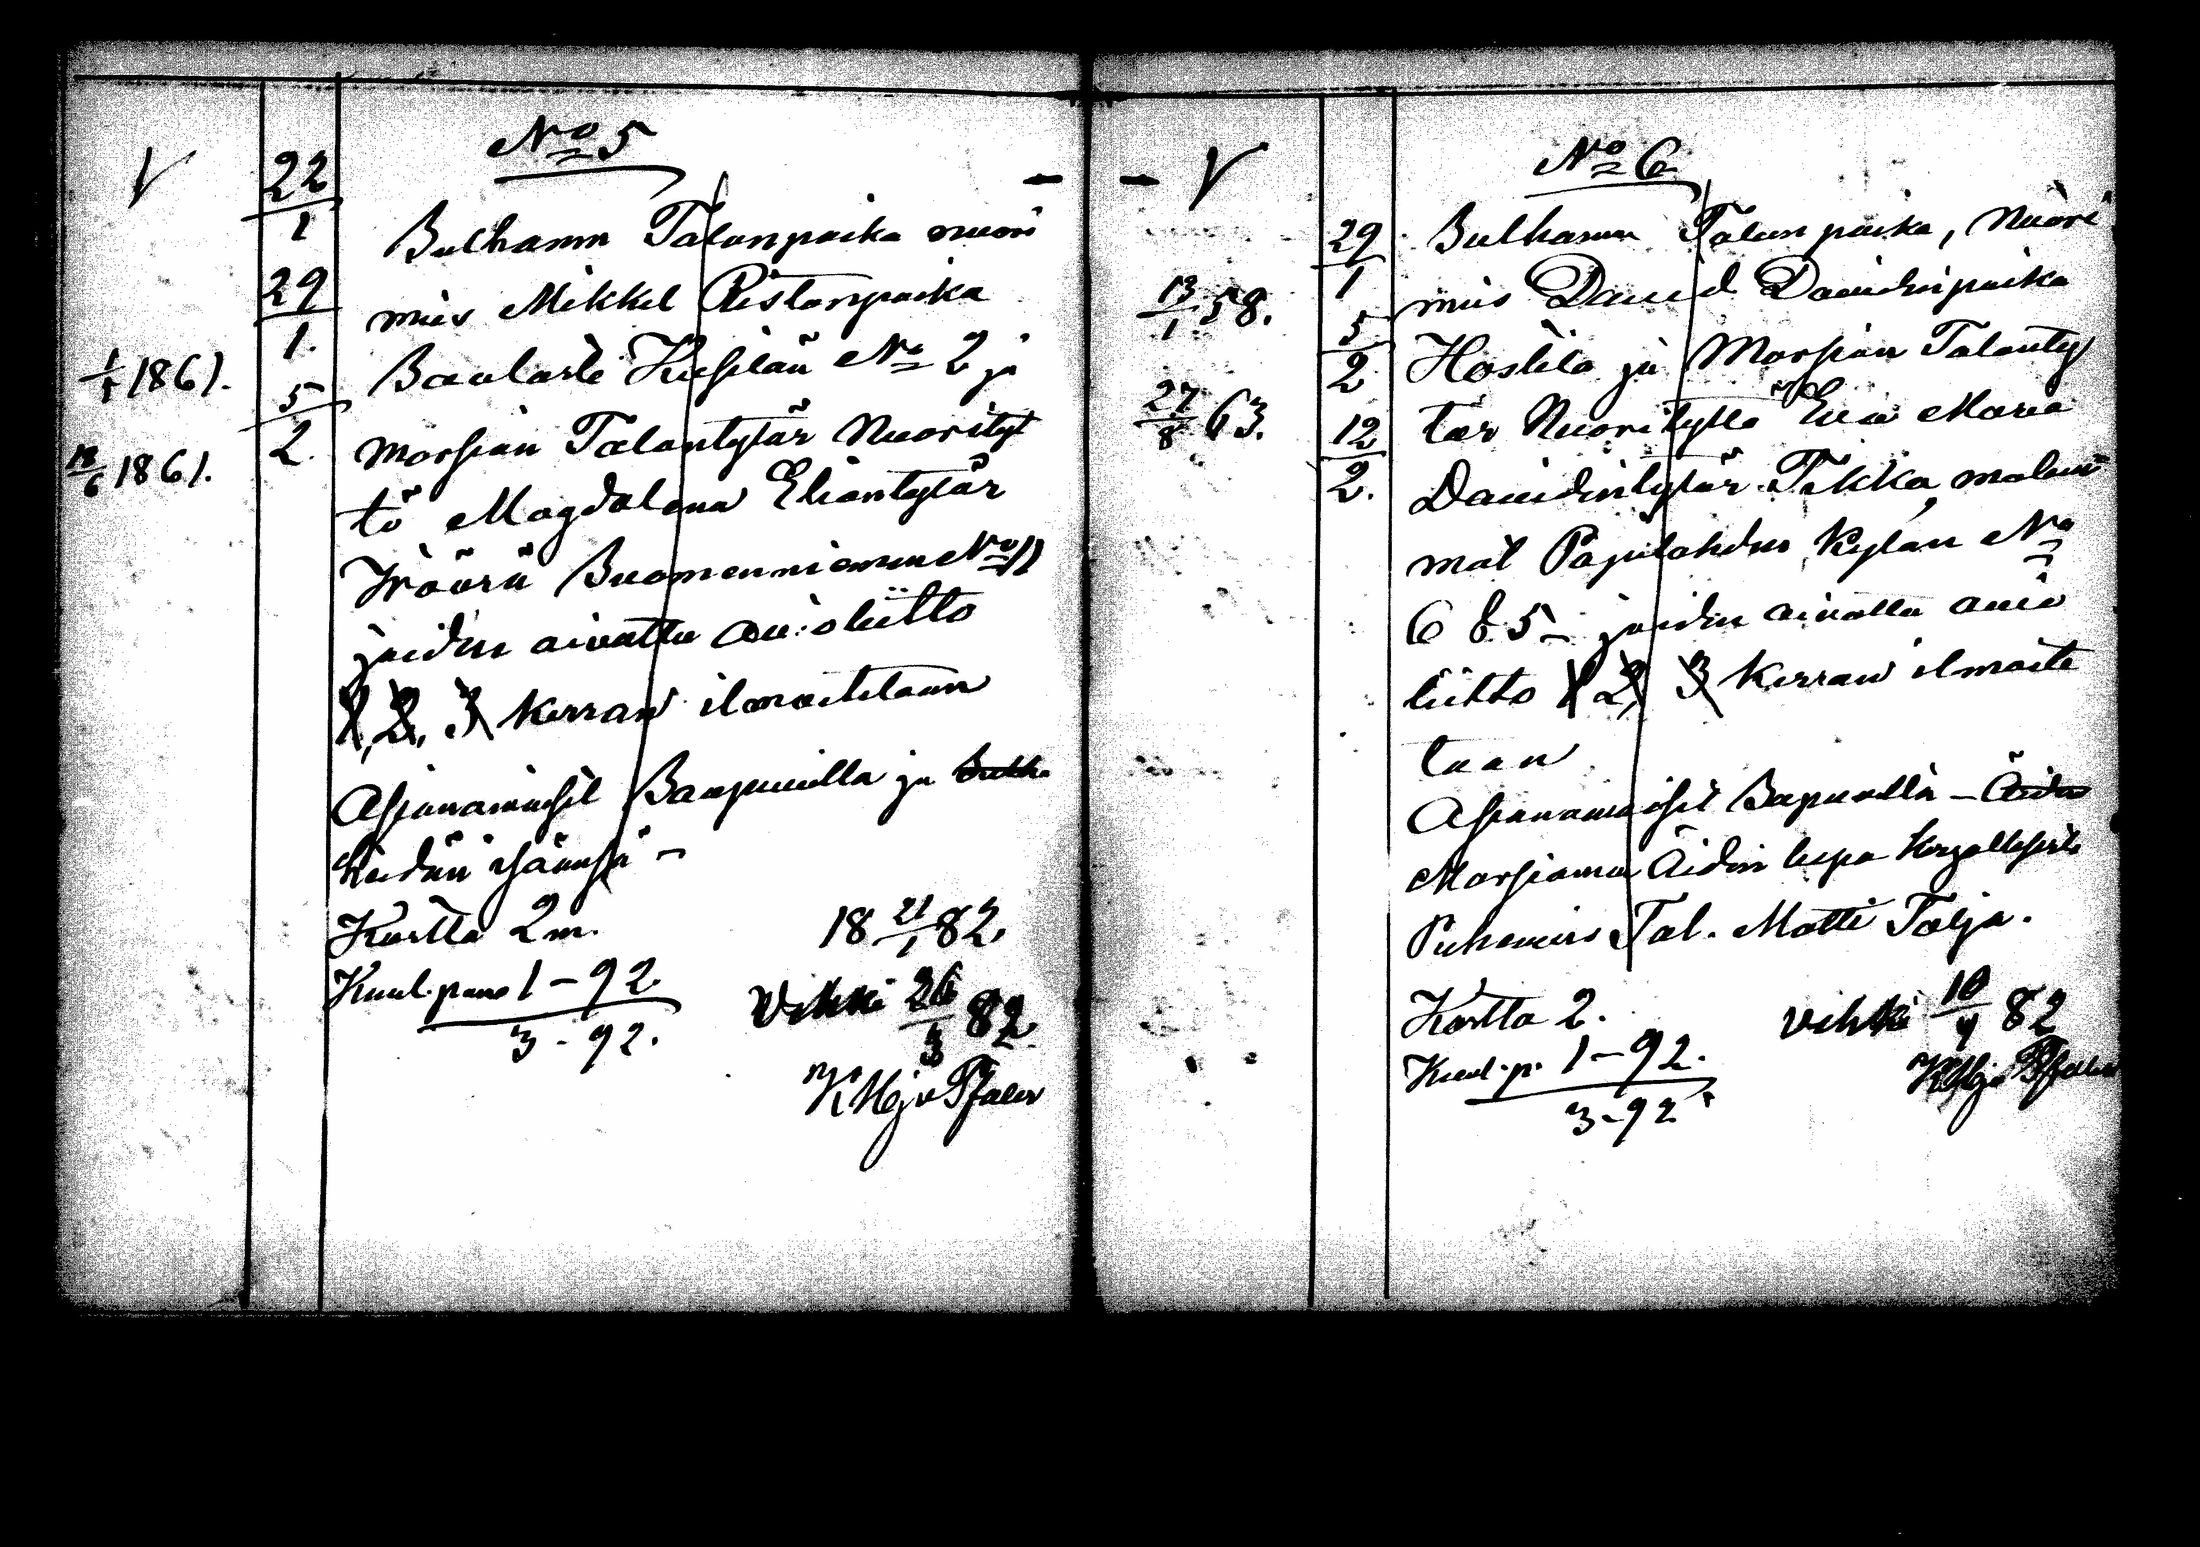 No 5
V
22/1
29/1.
5/2.
1/1 1861.
18/6 1861.
Sulhanen Talonpoika nuori
mies Mikkel Ristonpoika
No 2 ja
morsian Talontytär Nuorityt
tö Magdalena Eliantytär
Wäärä Suomenniemen No 11
joiden aivottu avioliitto
1, 2, 3 kerran ilmoitetaan
Asianomaiset Saapuvilla ja
Heidän isänsä –
Kortta 2 m.
Kuul. pano 1 – 92
3 – 92.
18 21/1 82.
Vihki 26/3 82
No 6
V
29/1
5/2
12/2.
13/1 58.
27/8 63.
Sulhanen Talonpoika, Nuori
mies David Davidinpoika
Hostila ja Morsian Talonty
tär Nuorityttö Eva Maria
Davidintytär Tikka, molem
mat Pajulahden kylän No
6 & 5 – joiden aivottu avio
liitto 1 2, 3 kerran ilmoite
taan
Asianomaiset Sapuvilla – Äidin
Morsiamen Äidin lupa
Puhemies Tal. Matti Talja.
Kortta 2.
Kuul. p. 1 – 92.
3 – 92
Vihki 10/4 82